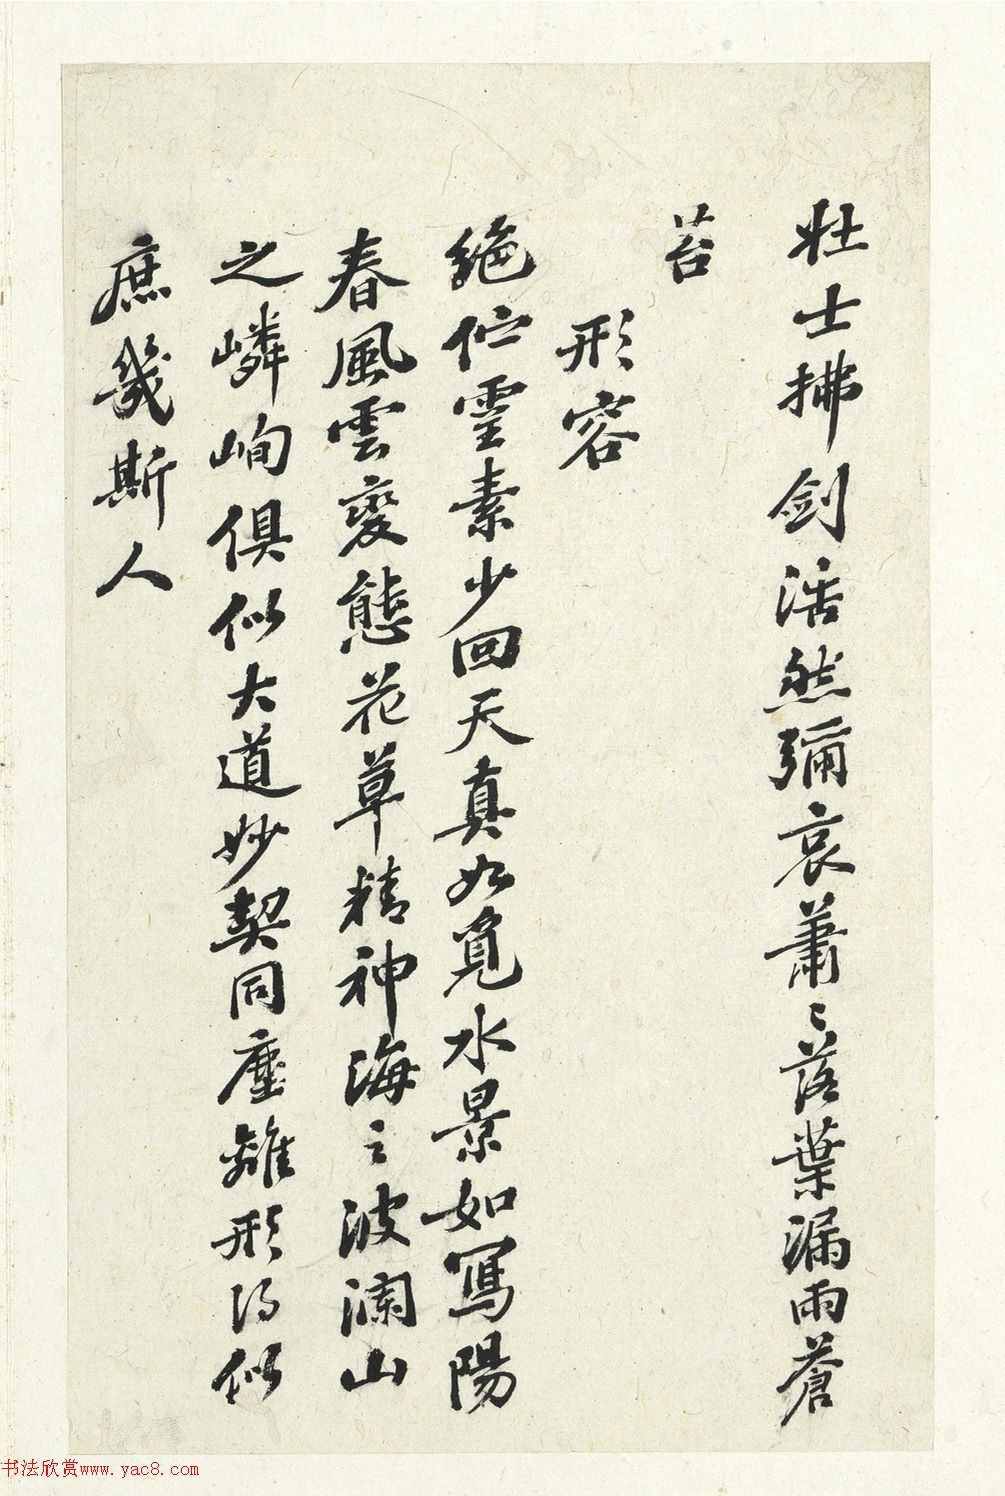 壯士拂劍浩然彌哀蕭〻落葉漏雨蒼
苔
形容
絕佇靈素少回天真如覓水景如寫陽
春風雲變態花草精神海之波瀾山
之嶙峋俱似大道妙契同塵離形得似
庶幾斯人
书法欣赏www.yac8.com